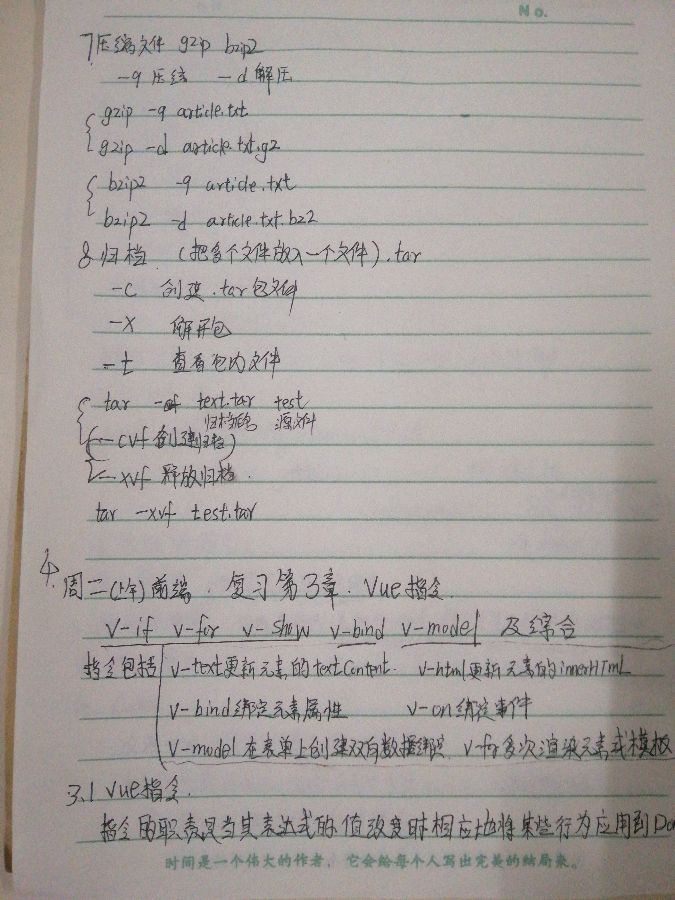 No.
7 压缩文件 gzip bzip2
-9 压缩 -d 解压
gzip -9 article.txt
gzip -d article.txt.gz
bzip2 -9 article.txt
bzip2 -d article.txt.bz2
8 归档 (把多个文件放入一个文件).tar
-c 创建.tar包文件
-x 解开包
-t 查看包内文件
tar text.tar test
归档包名 源文件
-cvf 创建(归档)
-xvf 释放归档.
tar -xvf test.tar
4. 周二(上午)前端. 复习第3章. Vue指令.
v-if v-for v-show v-bind v-model 及综合
指令包括 v-text更新元素的textContent. v-html更新元素的innerHTML
v-bind绑定元素属性 v-on绑定事件
v-model在表单上创建双向数据绑定 v-for多次渲染元素或模板
3.1 Vue指令.
指令的职责是当其表达式的值改变时相应地将某些行为应用到Do
时间是一个伟大的作者，它会给每个人写出完美的结局来。